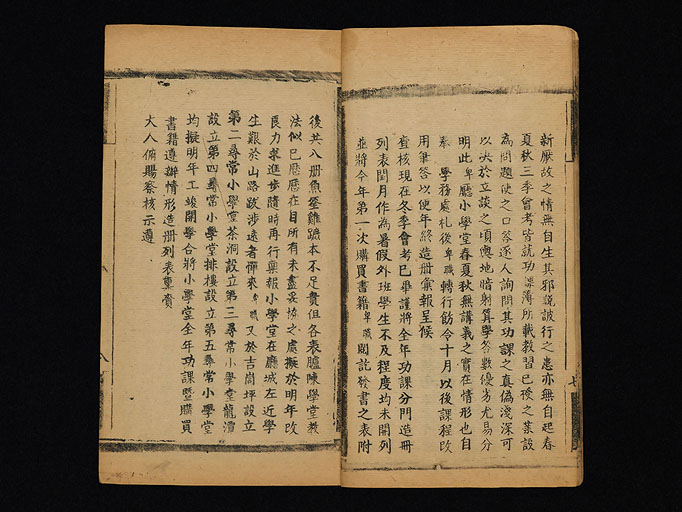 新厭故之情無自生其邪説詖行之患亦無自起春
夏秋三季會考皆就功課簿所載教習已授之業設
為問題使之口答逐人詢問其功課之真偽淺深可
以决於立談之頃輿地暗射算學答數優劣尤易分
明此卑廳小學堂春夏秋無講義之實在情形也自
奉 學務處札後卑職轉行飭令十月以後課程改
用筆答以便年終造册彙報呈候
查核現在冬季會考已畢謹將全年功課分門造冊
列表閏月作為暑假外班學生不及程度均未開列
並將今年第一次購買書籍卑職開記發書之表附
後共八册魚
雞蹠本不足貴但各表臚陳學堂教
法似已應在目所有未盡妥協之處擬於明年改
良力求進步隨時再行稟報小學堂在廳城左近學
生艱於山路跋涉遠者憚來卑職又於吉崗坪設立
第二尋常小學堂茶洞設立第三尋常小學堂龍潭
設立第四尋常小學堂排樓設立第五尋常小學堂
均擬明年工竣開學合將小學堂全年功課曁購買
書籍遵辦情形造冊列表稟賫
大人俯賜察核示遵